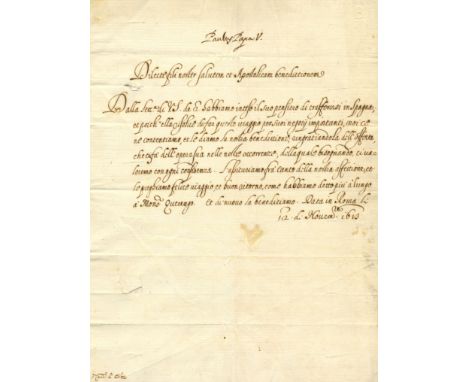 Paulus Papa V.
Dilecte fili noster salutem et Apostolicam benedictionem
Dalla di V.S. de habbiamo inteso il suo pensiero di trasferirsi in Spagna,
et poiché ella desidera di far questo viaggio per suoi negotij importanti, noi ce
ne contentiamo, et le diamo la nostra benedittione, ringratiandola dell'offerta
che ci fa dell'opera sua nelle nostre occorrenze, della quale bisognando, ci va-
leremo con ogni confidenza. fra tanto della nostra affettione, et
le preghiamo felice viaggio, et buon ritorno, come habbiamo detto più a lungo
a Mons.r Et di nuovo la benediciamo. Data in Roma li
12. di Novem.re 1613